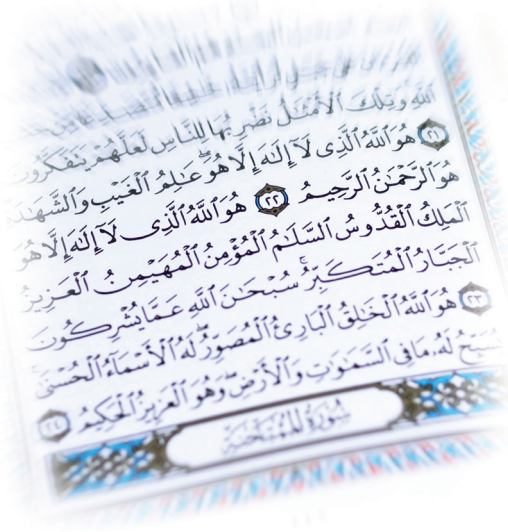 ٱللَّهِ وَتِلْكَ ٱلْأَمْثَـٰلُ نَضْرِبُهَا لِلنَّاسِ لَعَلَّهُمْ يَتَفَكَّرُونَ
٢١ هُوَ ٱللَّهُ ٱلَّذِى لَآ إِلَـٰهَ إِلَّا هُوَ عَـٰلِمُ ٱلْغَيْبِ وَٱلشَّهَـٰدَةِ
هُوَ ٱلرَّحْمَـٰنُ ٱلرَّحِيمُ ٢٢ هُوَ ٱللَّهُ ٱلَّذِى لَآ إِلَـٰهَ إِلَّا هُوَ
ٱلْمَلِكُ ٱلْقُدُّوسُ ٱلسَّلَـٰمُ ٱلْمُؤْمِنُ ٱلْمُهَيْمِنُ ٱلْعَزِيزُ
ٱلْجَبَّارُ ٱلْمُتَكَبِّرُ ۚ سُبْحَـٰنَ ٱللَّهِ عَمَّا يُشْرِكُونَ
٢٣ هُوَ ٱللَّهُ ٱلْخَـٰلِقُ ٱلْبَارِئُ ٱلْمُصَوِّرُ ۖ لَهُ ٱلْأَسْمَآءُ ٱلْحُسْنَىٰ
يُسَبِّحُ لَهُۥ مَا فِى ٱلسَّمَـٰوَٰتِ وَٱلْأَرْضِ ۖ وَهُوَ ٱلْعَزِيزُ ٱلْحَكِيمُ ٢٤
سُورَةُ الْمُمْتَحَنَةِ